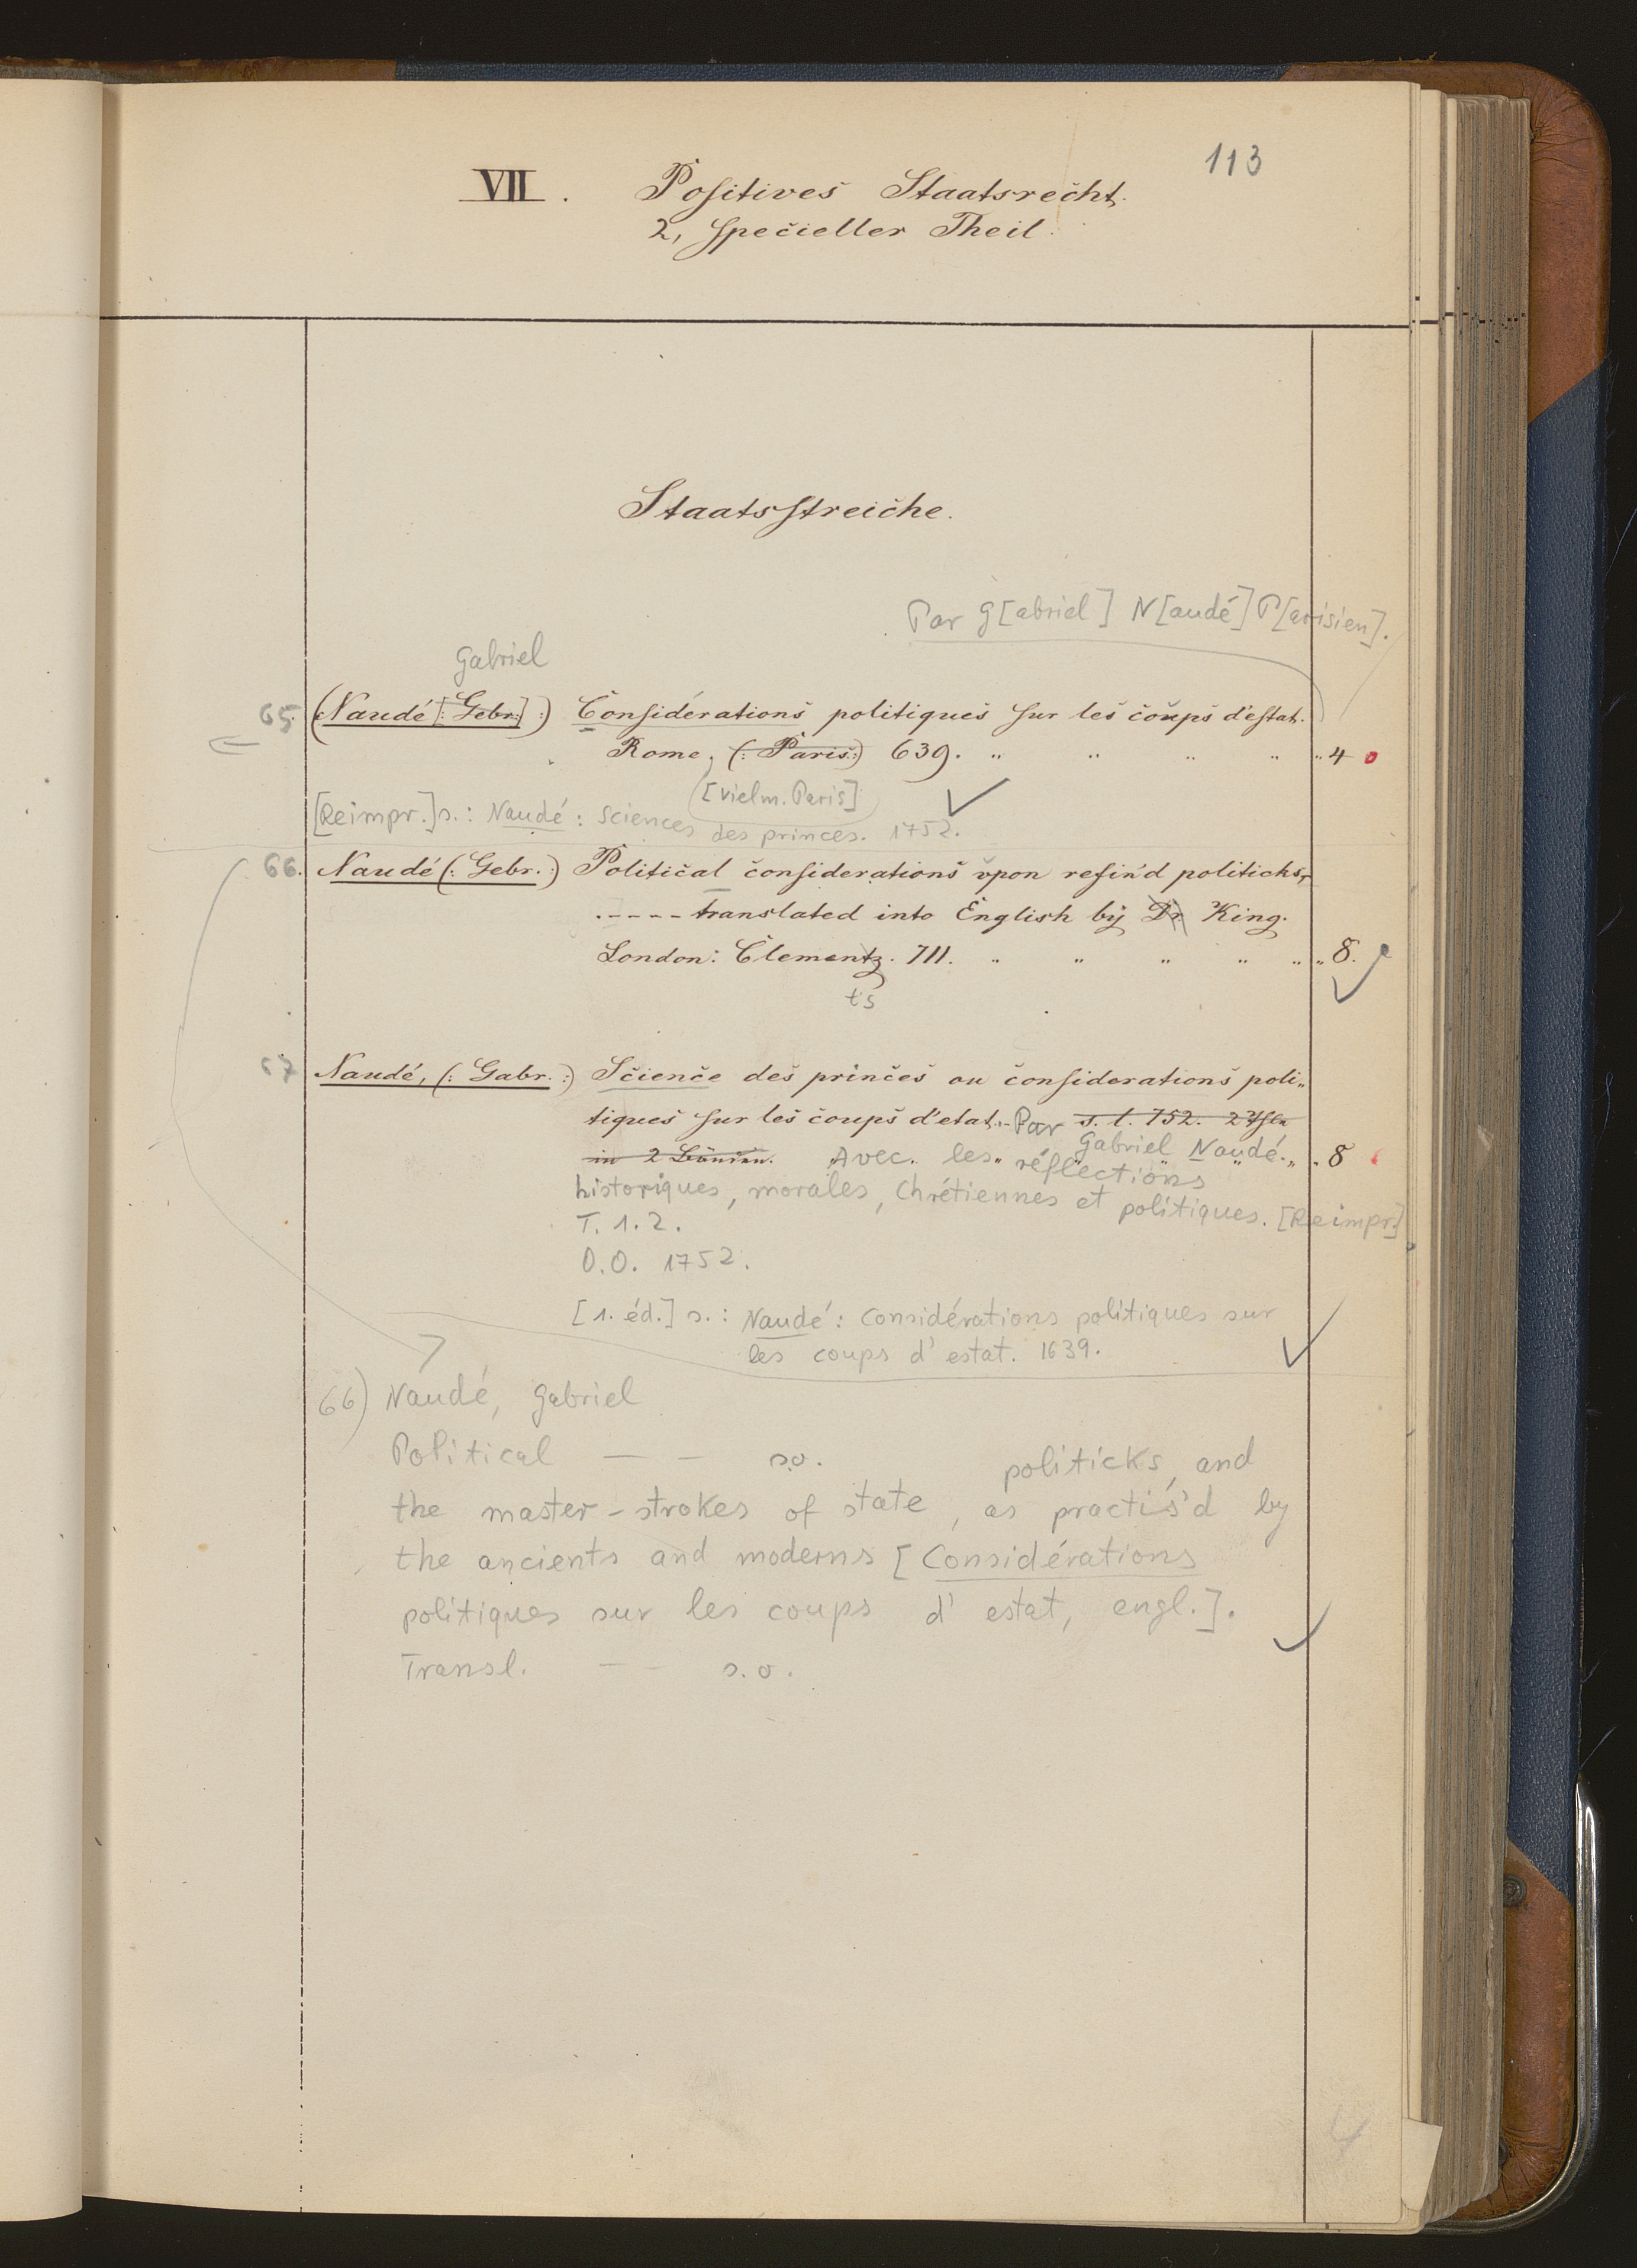 113
VII. Positives Staatsrecht.
2, specieller Theil.
Staatsstreiche.
Par G[abriel] N[audé] P[arisien].
Gabriel
65. (Naudé [: Gebr:] :) Considérations politiques sur les coups d'estat.
Rome, (: Paris:) 639. " " " " " 4 0
[vielm. Paris]
[Reimpr.] s.: Naudé: Sciences des princes. 1752.
66. Naudé (: Gebr. :) Political considerations upon refin'd politicks,
.---- translated into English by Dr. King.
London: Clementz. 711. " " " " " " 8.
ts
67 Naudé, (: Gabr. :) Science des princes ou considerations poli„
tiques sur les coups d'etat. Par s. l. 752. 2 Thle
in 2 Bänden. Gabriel Naudé. " 8
Avec. les réflections
historiques, morales, Chrétiennes et politiques. [Reimpr.]
T. 1. 2.
O.O. 1752.
[1. éd.] s.: Naudé: Considérations politiques sur
les coups d'estat. 1639.
66) Naudé, Gabriel
Political — — s.o. politicks, and
the master-strokes of state, as practis'd by
the ancients and moderns [Considérations
politiques sur les coups d'estat, engl.].
Transl. — — s.o.